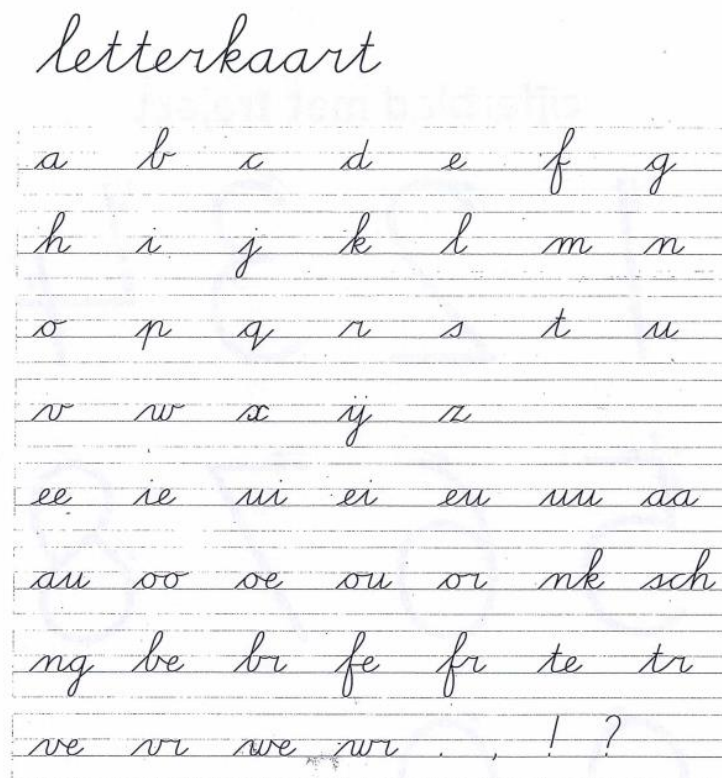 letterkaart
a b c d e f g
h i j k l m n
o p q r s t u
v w x ij z
ee ie ui ei eu uu aa
au oo oe ou or nk sch
ng be br fe fr te tr
ve vr we wr . , ! ?